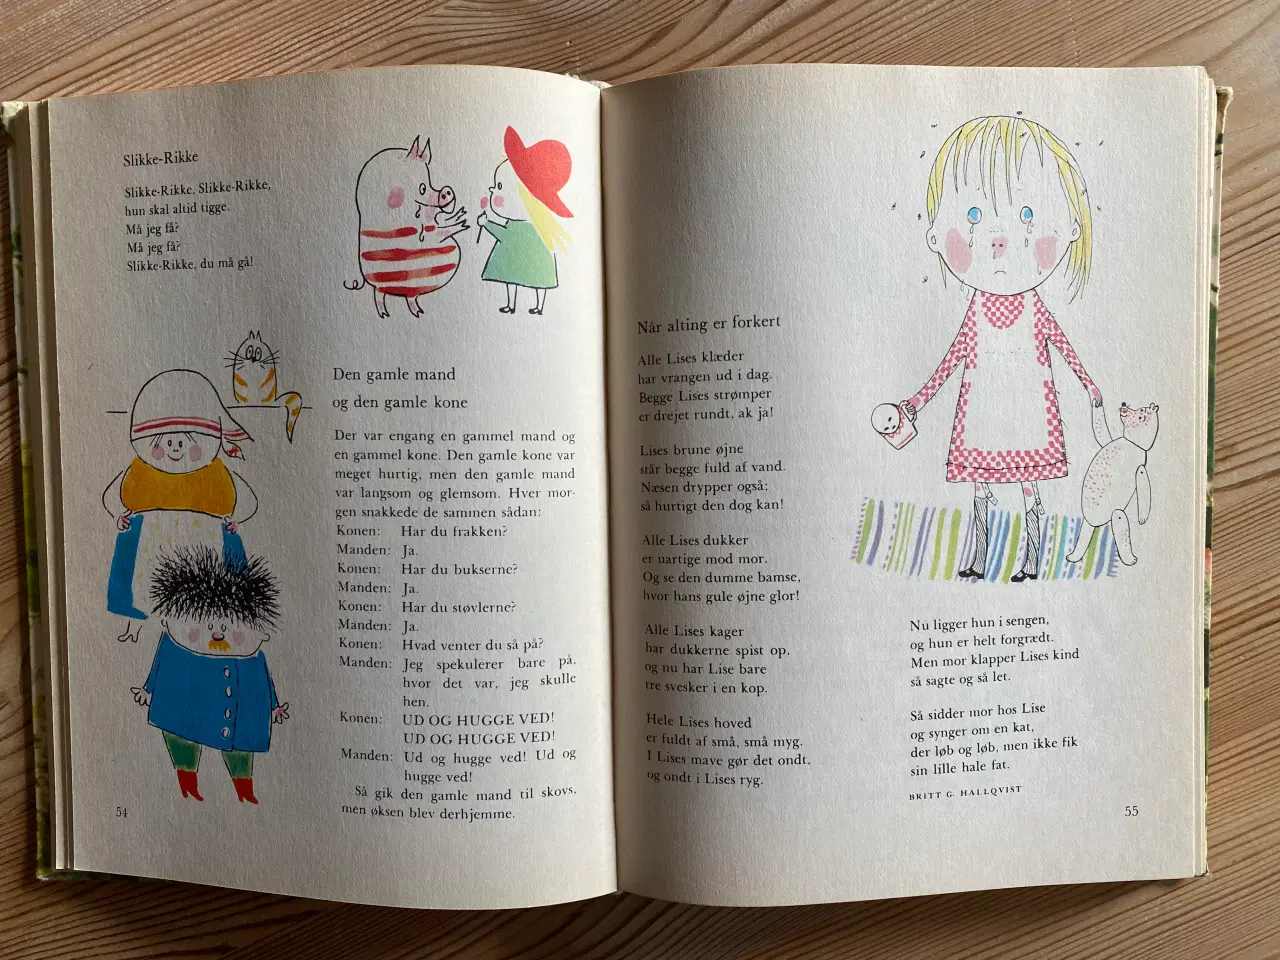 Slikke-Rikke
Slikke-Rikke, Slikke-Rikke,
hun skal altid tigge.
Må jeg få?
Må jeg få?
Slikke-Rikke, du må gå!
Den gamle mand
og den gamle kone
Der var engang en gammel mand og
en gammel kone. Den gamle kone var
meget hurtig, men den gamle mand
var langsom og glemsom. Hver mor-
gen snakkede de sammen sådan:
Konen: Har du frakken?
Manden: Ja.
Konen: Har du bukserne?
Manden: Ja.
Konen: Har du støvlerne?
Manden: Ja.
Konen: Hvad venter du så på?
Manden: Jeg spekulerer bare på,
hvor det var, jeg skulle
hen.
Konen: UD OG HUGGE VED!
UD OG HUGGE VED!
Manden: Ud og hugge ved! Ud og
hugge ved!
Så gik den gamle mand til skovs,
men øksen blev derhjemme.
54
Når alting er forkert
Alle Lises klæder
har vrangen ud i dag.
Begge Lises strømper
er drejet rundt, ak ja!
Lises brune øjne
står begge fuld af vand.
Næsen drypper også;
så hurtigt den dog kan!
Alle Lises dukker
er uartige mod mor.
Og se den dumme bamse,
hvor hans gule øjne glor!
Alle Lises kager
har dukkerne spist op,
og nu har Lise bare
tre svesker i en kop.
Hele Lises hoved
er fuldt af små, små myg.
I Lises mave gør det ondt,
og ondt i Lises ryg.
Nu ligger hun i sengen,
og hun er helt forgrædt.
Men mor klapper Lises kind
så sagte og så let.
Så sidder mor hos Lise
og synger om en kat,
der løb og løb, men ikke fik
sin lille hale fat.
BRITT G. HALLQVIST
55